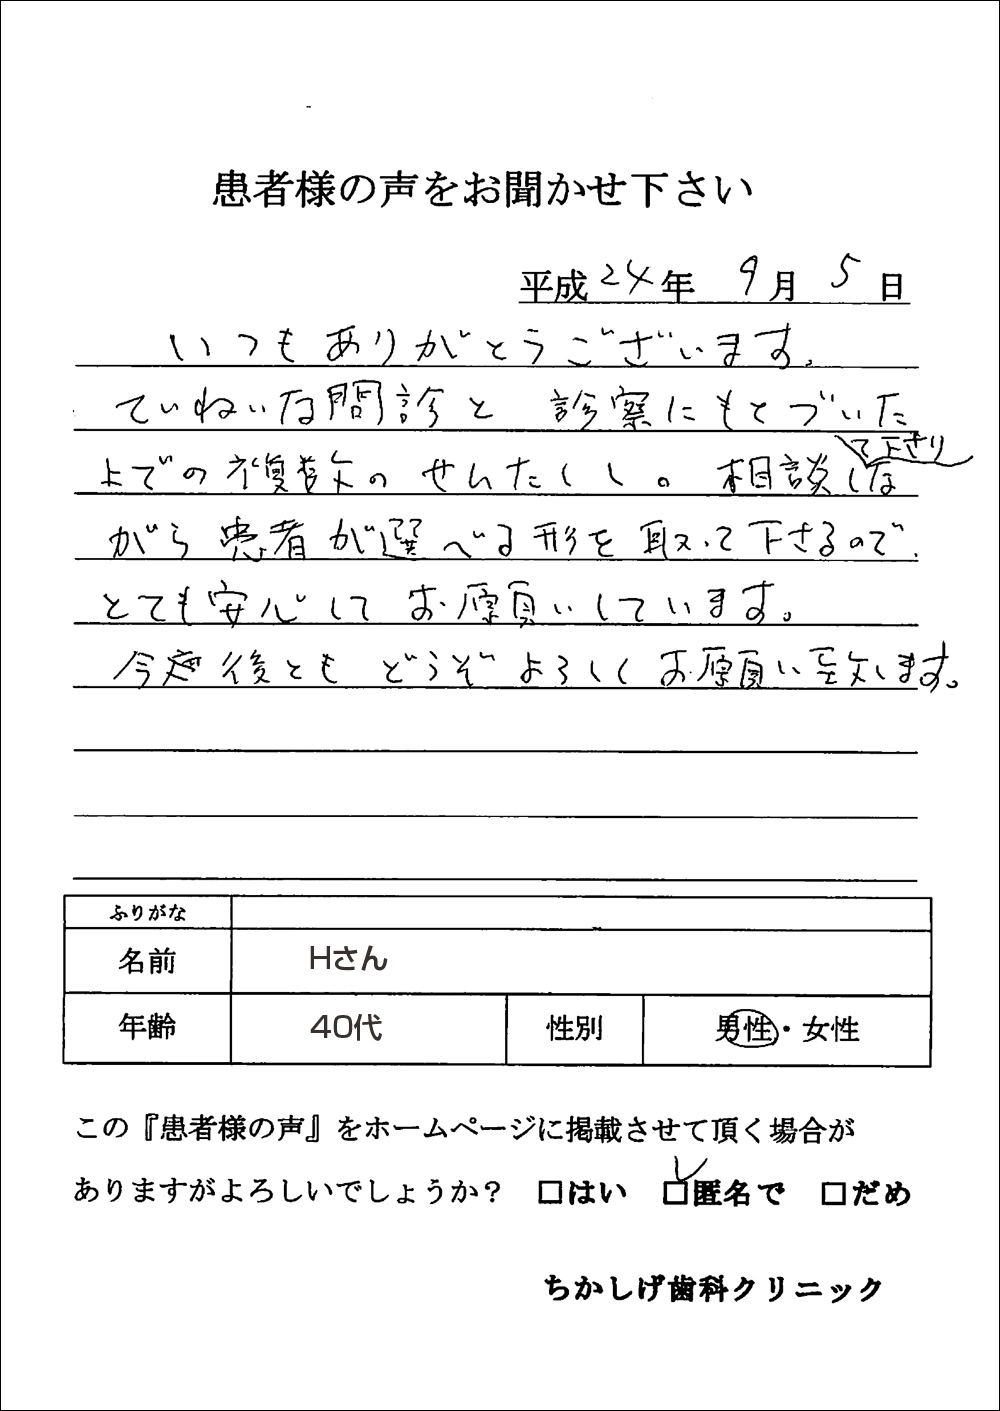 患者様の声をお聞かせ下さい
平成24年 9月 5日
いつもありがとうございます。
ていねいな問診と 診察にもとづいた
て下さり
上での複数のせんたくし。相談しな
がら患者が選べる形を取って下さるので、
とても安心して お願いしています。
今後とも どうぞよろしくお願い致します。
ふりがな
名前 Hさん
年齢 40代 性別 男性・女性
この『患者様の声』をホームページに掲載させて頂く場合が
ありますがよろしいでしょうか？ □はい □匿名で □だめ
ちかしげ歯科クリニック